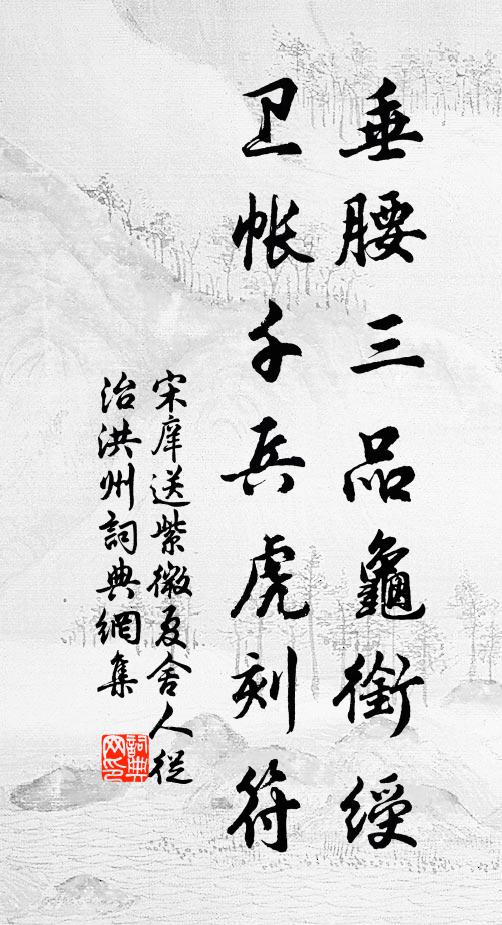 垂腰三品龜銜綬
卫帐千兵虎刻符
宋庠送紫微夏舍人從
治洪州詞典網集
詞典
网印